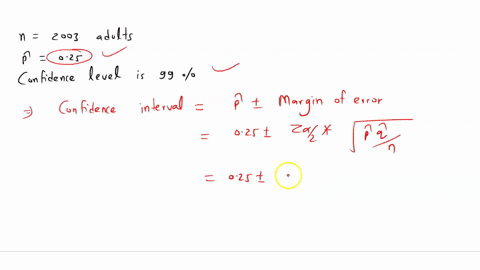 n = 2003 adults
p̂ = 0.25
Confidence level is 99 %
⇒ Confidence interval = p̂ ± Margin of error
= 0.25 ± Zα/2 * √p̂q̂/n
= 0.25 ±